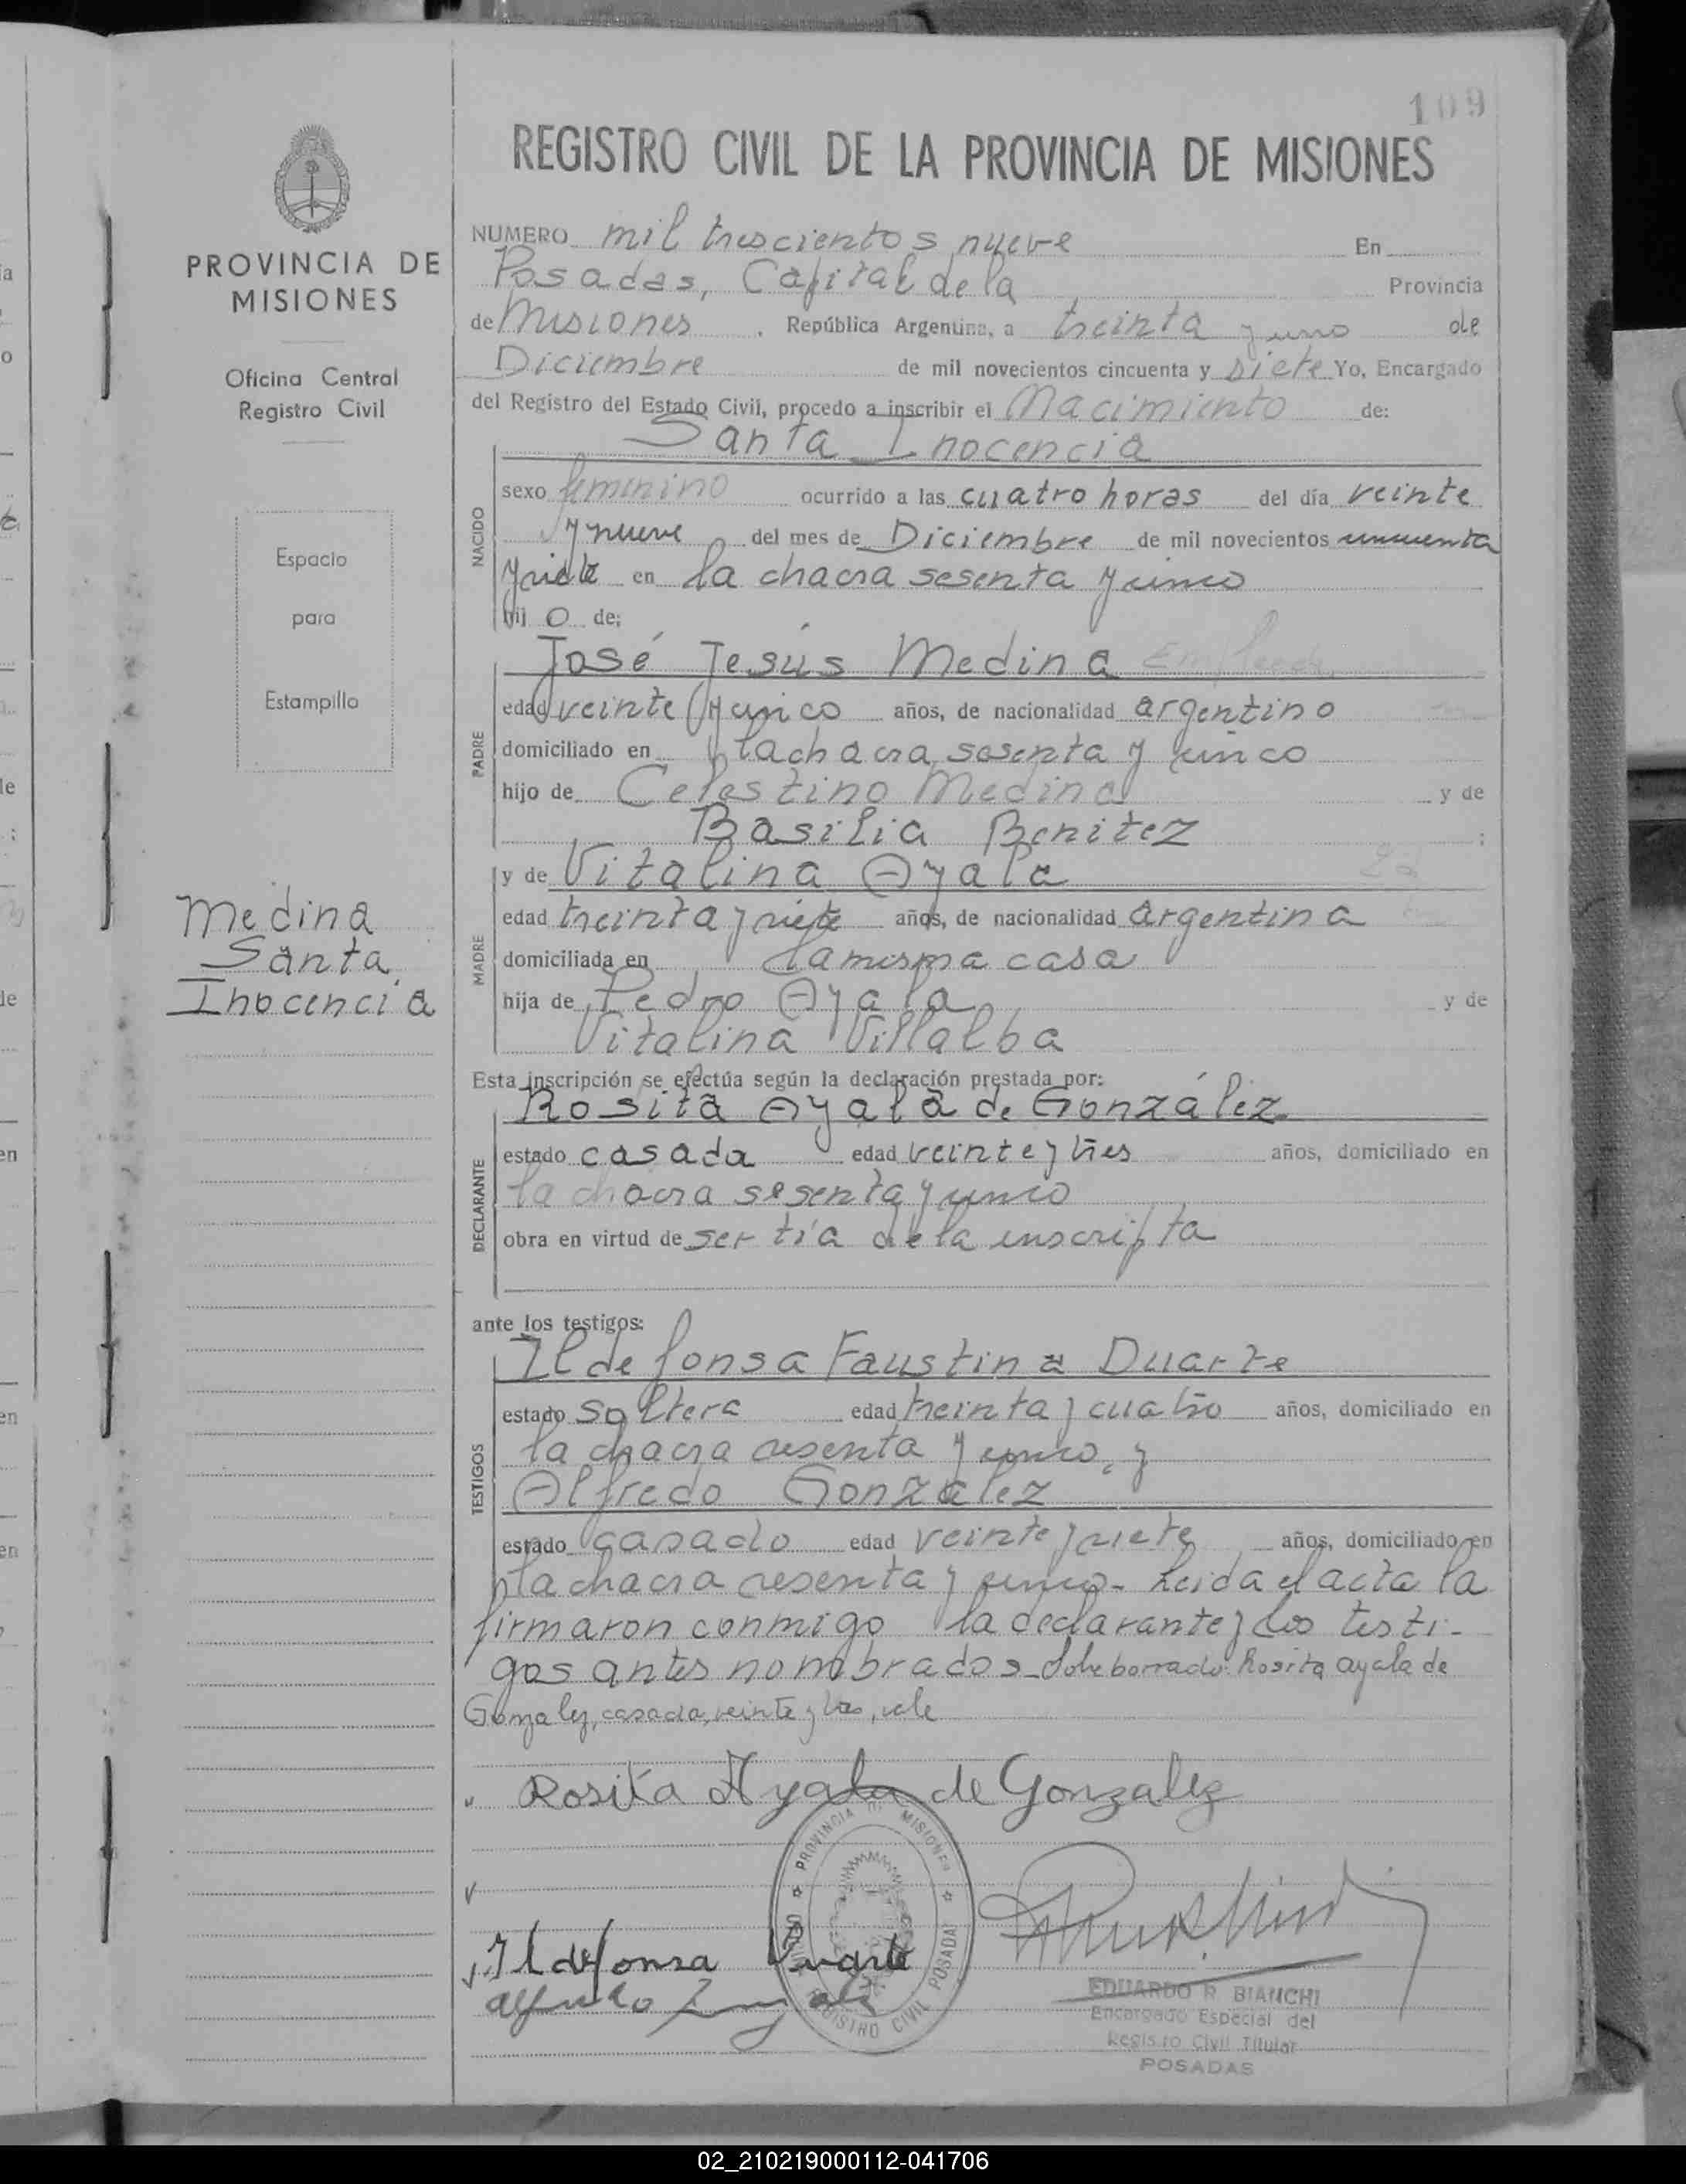 109
REGISTRO CIVIL DE LA PROVINCIA DE MISIONES
PROVINCIA DE
MISIONES
Oficina Central
Registro Civil
Espacio
para
Estampilla
Medina
Santa
Inocencia
NUMERO mil trescientos nueve En
Posadas, Capital de la Provincia
de Misiones . República Argentina, a treinta y uno de
Diciembre de mil novecientos cincuenta y siete Yo, Encargado
del Registro del Estado Civil, procedo a inscribir el Nacimiento de:
Santa Inocencia
NACIDO
sexo femenino ocurrido a las cuatro horas del día veinte
y nueve del mes de Diciembre de mil novecientos cincuenta
y siete en la chacra sesenta y cinco
hij o de;
José Jesús Medina Empleado
PADRE
edad veinte y cinco años, de nacionalidad argentino
domiciliado en la chacra sesenta y cinco
hijo de Celestino Medina y de
Basilia Benitez ;
y de Vitalina Ayala
MADRE
edad treinta y siete años, de nacionalidad argentina
domiciliada en la misma casa
hija de Pedro Ayala y de
Vitalina Villalba
Esta inscripción se efectúa según la declaración prestada por:
Rosita Ayala de González
DECLARANTE
estado casada edad veinte y tres años, domiciliado en
la chacra sesenta y cinco
obra en virtud de ser tía de la inscripta
ante los testigos:
Ildefonsa Faustina Duarte
TESTIGOS
estado soltera edad treinta y cuatro años, domiciliado en
la chacra sesenta y cinco, y
Alfredo González
estado casado edad veinte y siete años, domiciliado en
la chacra sesenta y cinco- Leida el acta la
firmaron conmigo la declarante y los testi-
gos antes nombrados- Sobre borrado: Rosita ayala de
Gonzalez, casada, veinte y tres, vale
Rosita Ayala de Gonzalez
Ildefonsa Duarte
PROVINCIA DE MISIONES
REGISTRO CIVIL POSADAS
EDUARDO R BIANCHI
Encargado Especial del
Registro Civil Titular
POSADAS
02_210219000112-041706